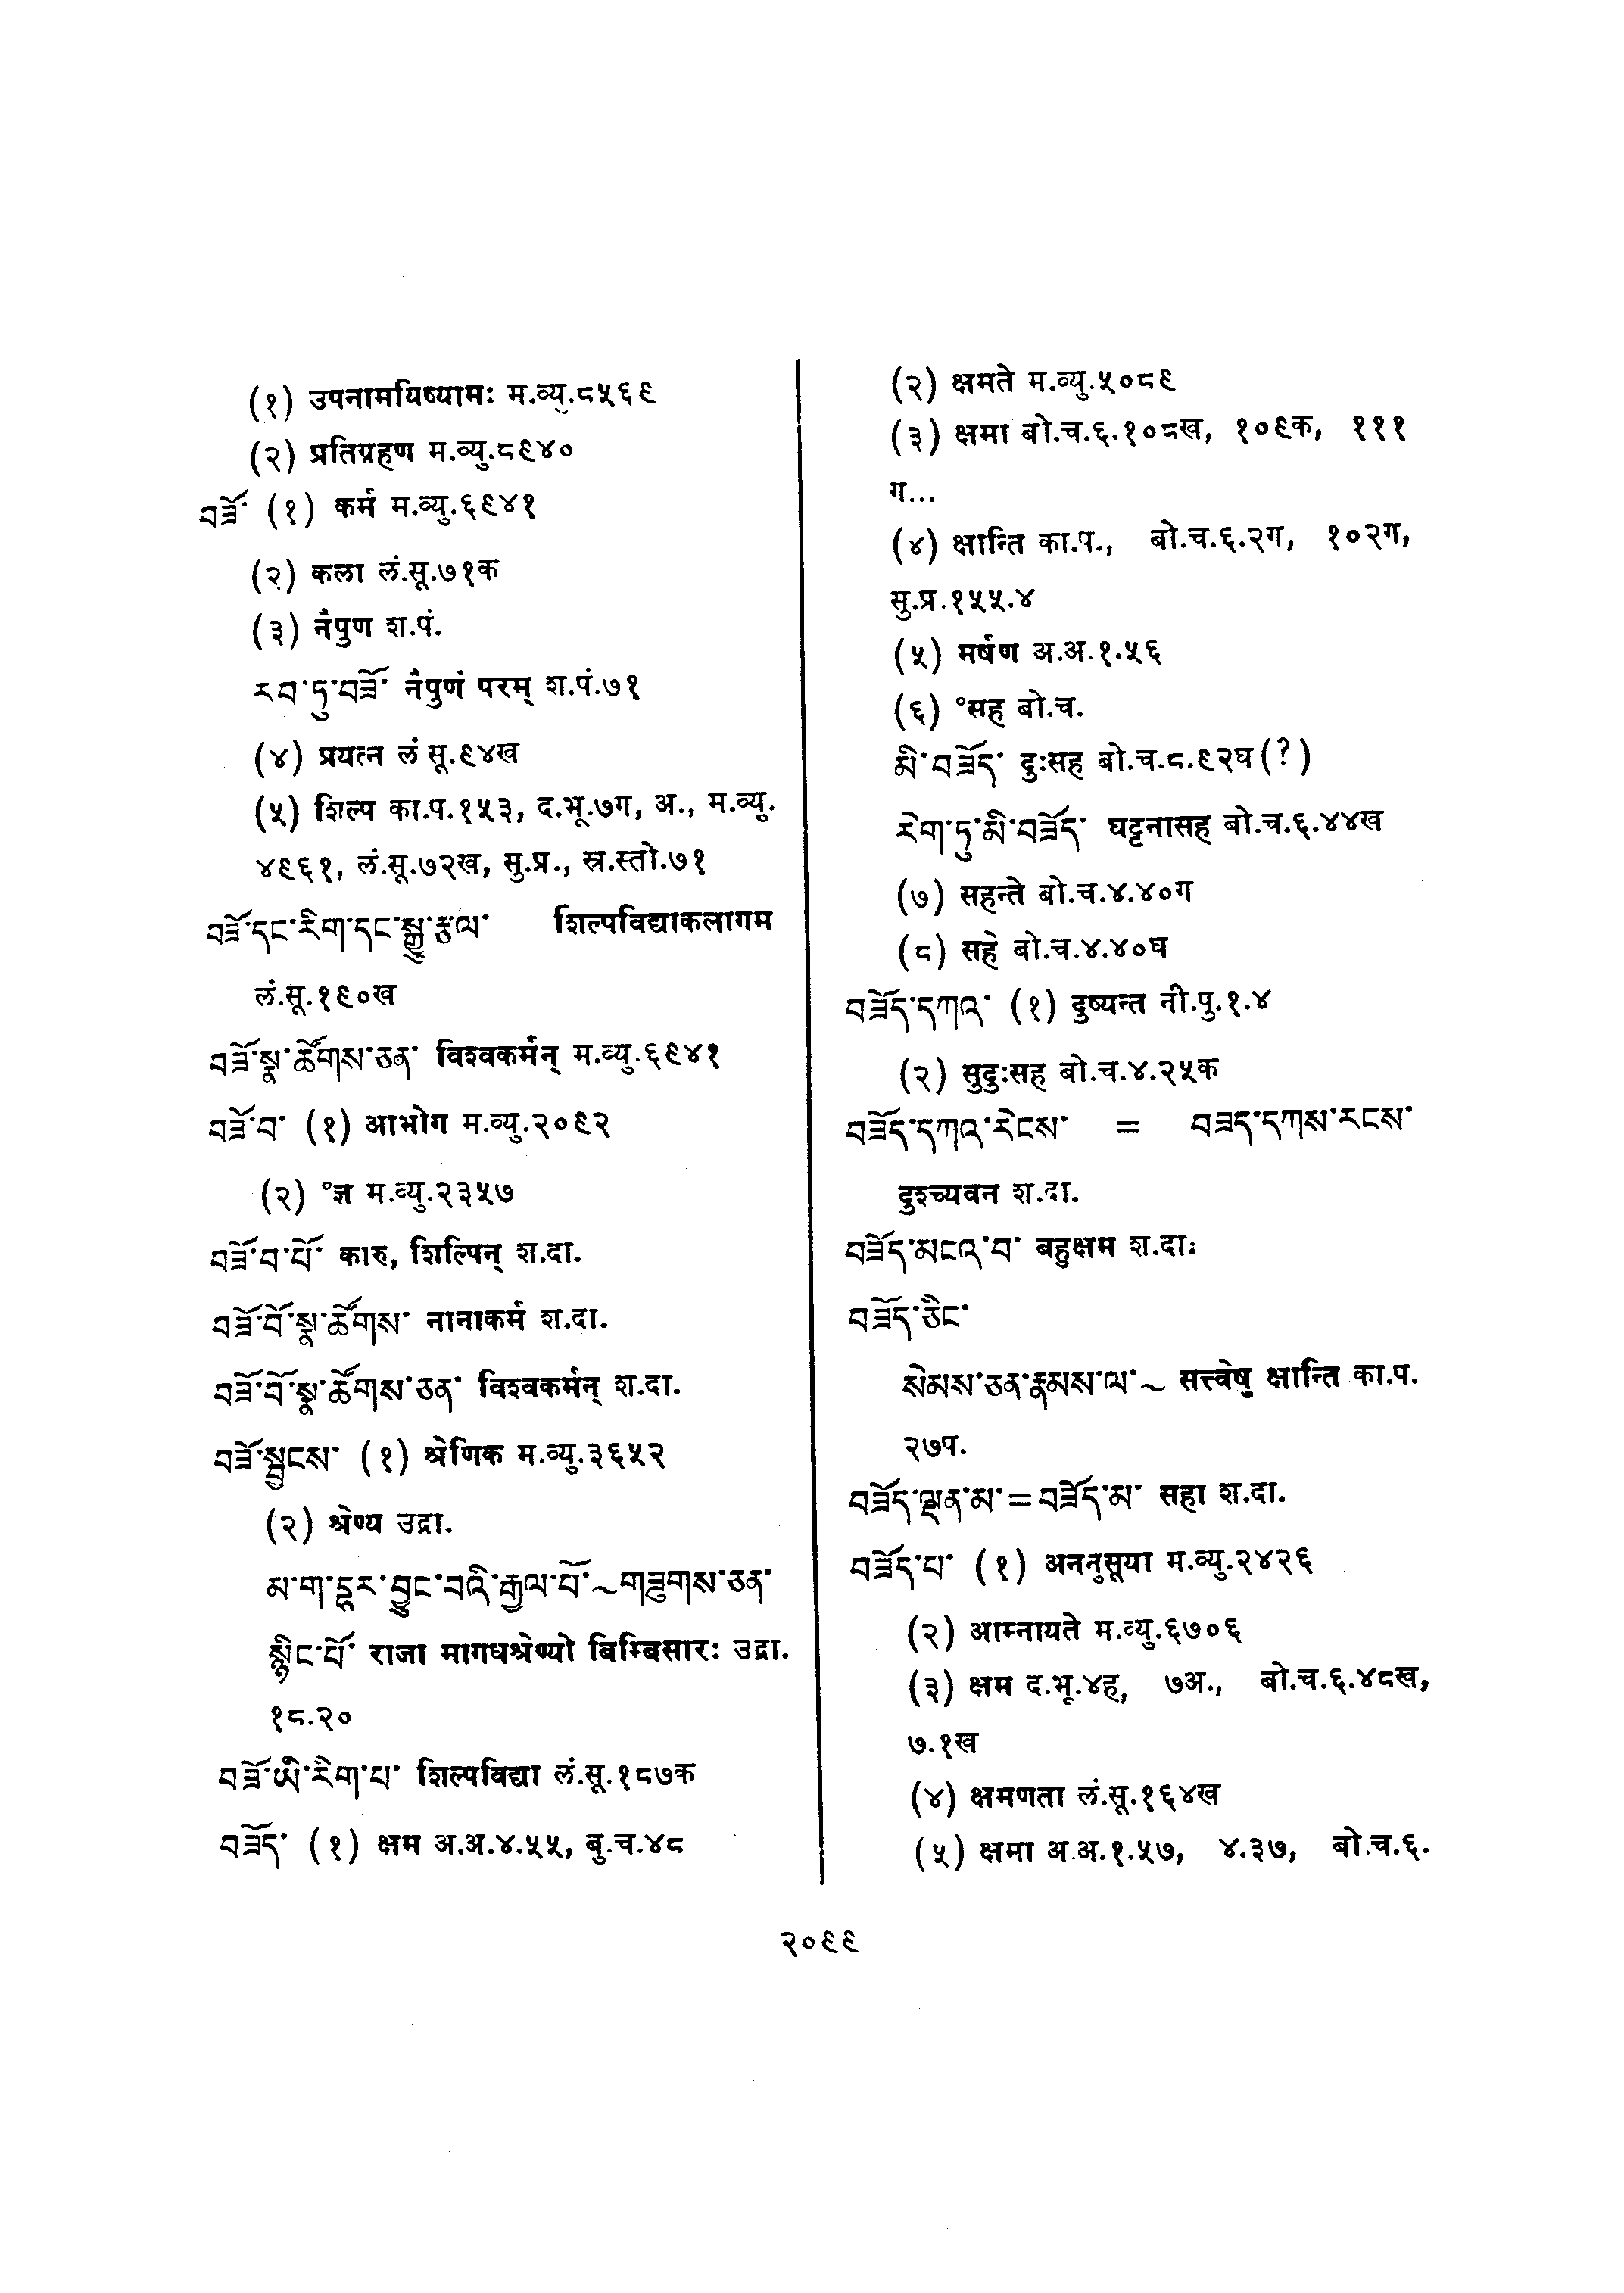 (१) उपनामयिष्यामः म.व्यु.८५६९
(२) प्रतिग्रहण म.व्यु.८९४०
བཟོ་ (१) कर्म म.व्यु.६९४१
(२) कला लं.सू.७१क
(३) नैपुण श.पं.
རབ་ཏུ་བཟོ་ नैपुणं परम् श.पं.७१
(४) प्रयत्न लं सू.९४ख
(५) शिल्प का.प.१५३, द.भू.७ग, अ., म.व्यु.
४९६१, लं.सू.७२ख, सु.प्र., स्र.स्तो.७१
བཟོ་དང་རིག་དང་སྒྱུ་རྩལ་ शिल्पविद्याकलागम
लं.सू.१९०ख
བཟོ་སྣ་ཚོགས་ཅན་ विश्वकर्मन् म.व्यु.६९४१
བཟོ་བ་ (१) आभोग म.व्यु.२०९२
(२) °ज्ञ म.व्यु.२३५७
བཟོ་བ་པོ་ कारु, शिल्पिन् श.दा.
བཟོ་བོ་སྣ་ཚོགས་ नानाकर्म श.दा.
བཟོ་བོ་སྣ་ཚོགས་ཅན་ विश्वकर्मन् श.दा.
བཟོ་སྦྱངས་ (१) श्रेणिक म.व्यु.३६५२
(२) श्रेण्य उद्रा.
མ་ག་དྷར་བྱུང་བའི་རྒྱལ་པོ་~གཟུགས་ཅན་
སྙིང་པོ་ राजा मागधश्रेण्यो बिम्बिसारः उद्रा.
१८.२०
བཟོ་ཡི་རིག་པ་ शिल्पविद्या लं.सू.१८७क
བཟོད་ (१) क्षम अ.अ.४.५५, बु.च.४८
(२) क्षमते म.व्यु.५०८९
(३) क्षमा बो.च.६.१०८ख, १०९क, १११
ग...
(४) क्षान्ति का.प., बो.च.६.२ग, १०२ग,
सु.प्र.१५५.४
(५) मर्षण अ.अ.१.५६
(६) °सह बो.च.
མི་བཟོད་ दुःसह बो.च.८.९२घ(?)
རེག་ཏུ་མི་བཟོད་ घट्टनासह बो.च.६.४४ख
(७) सहन्ते बो.च.४.४०ग
(८) सहे बो.च.४.४०घ
བཟོད་དཀའ་ (१) दुष्यन्त नी.पु.१.४
(२) सुदुःसह बो.च.४.२५क
བཟོད་དཀའ་རེངས་ = བཟད་དཀས་རངས་
दुश्च्यवन श.दा.
བཟོད་མངའ་བ་ बहुक्षम श.दा.
བཟོད་ཅིང་
སེམས་ཅན་རྣམས་ལ་~ सत्त्वेषु क्षान्ति का.प.
२७प.
བཟོད་ལྡན་མ་=བཟོད་མ་ सहा श.दा.
བཟོད་པ་ (१) अननुसूया म.व्यु.२४२६
(२) आम्नायते म.व्यु.६७०६
(३) क्षम द.भू.४ह, ७अ., बो.च.६.४८ख,
७.१ख
(४) क्षमणता लं.सू.१६४ख
(५) क्षमा अ.अ.१.५७, ४.३७, बो.च.६.
२०९९